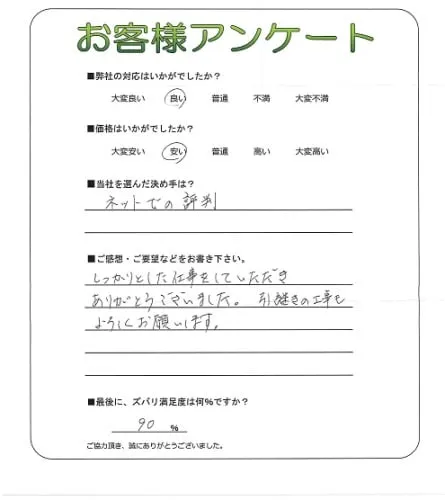 お客様アンケート
■弊社の対応はいかがでしたか？
大変良い 良い 普通 不満 大変不満
■価格はいかがでしたか？
大変安い 安い 普通 高い 大変高い
■当社を選んだ決め手は？
ネットでの評判
■ご感想・ご要望などをお書き下さい。
しっかりとした仕事をしていただき
ありがとうございました。引継きの工事も
よろしくお願いします。
■最後に、ズバリ満足度は何％ですか？
90 ％
ご協力頂き、誠にありがとうございました。